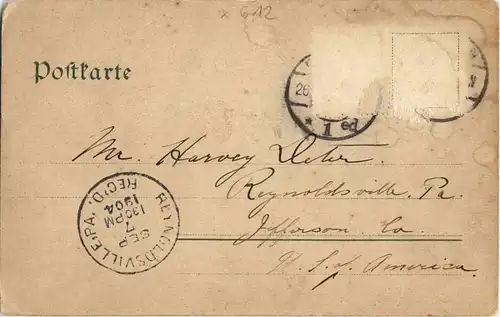 x 612
Postkarte
26.
* 1 ed
Mr. Harvey Deter.
Reynoldsville. Pa.
Jefferson. Co.
U. S. of America.
REYNOLDSVILLE, PA. REC'D.
SEP
7
130PM
1904